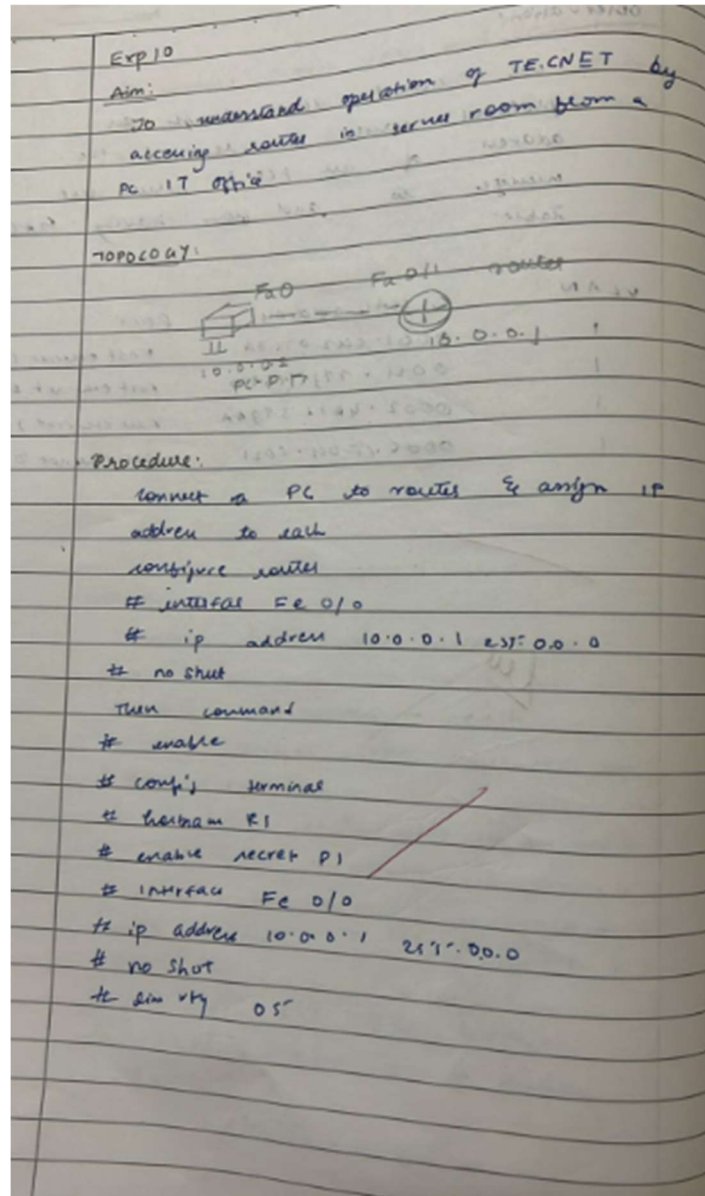 Exp 10
Aim:
To understand operation of TE.CNET by
accessing router in server room from a
PC IT office
TOPOLOGY:
Fa0 Fa0/1 router
10.0.0.1
10.0.0.2
PC-PT
Procedure:
connect a PC to router & assign IP
address to each
configure router
# interfac Fe 0/0
# ip address 10.0.0.1 255.0.0.0
# no shut
Then command
# enable
# config terminal
# hostnam R1
# enable secret P1
# interfac Fe 0/0
# ip address 10.0.0.1 255.0.0.0
# no shut
# vty 05